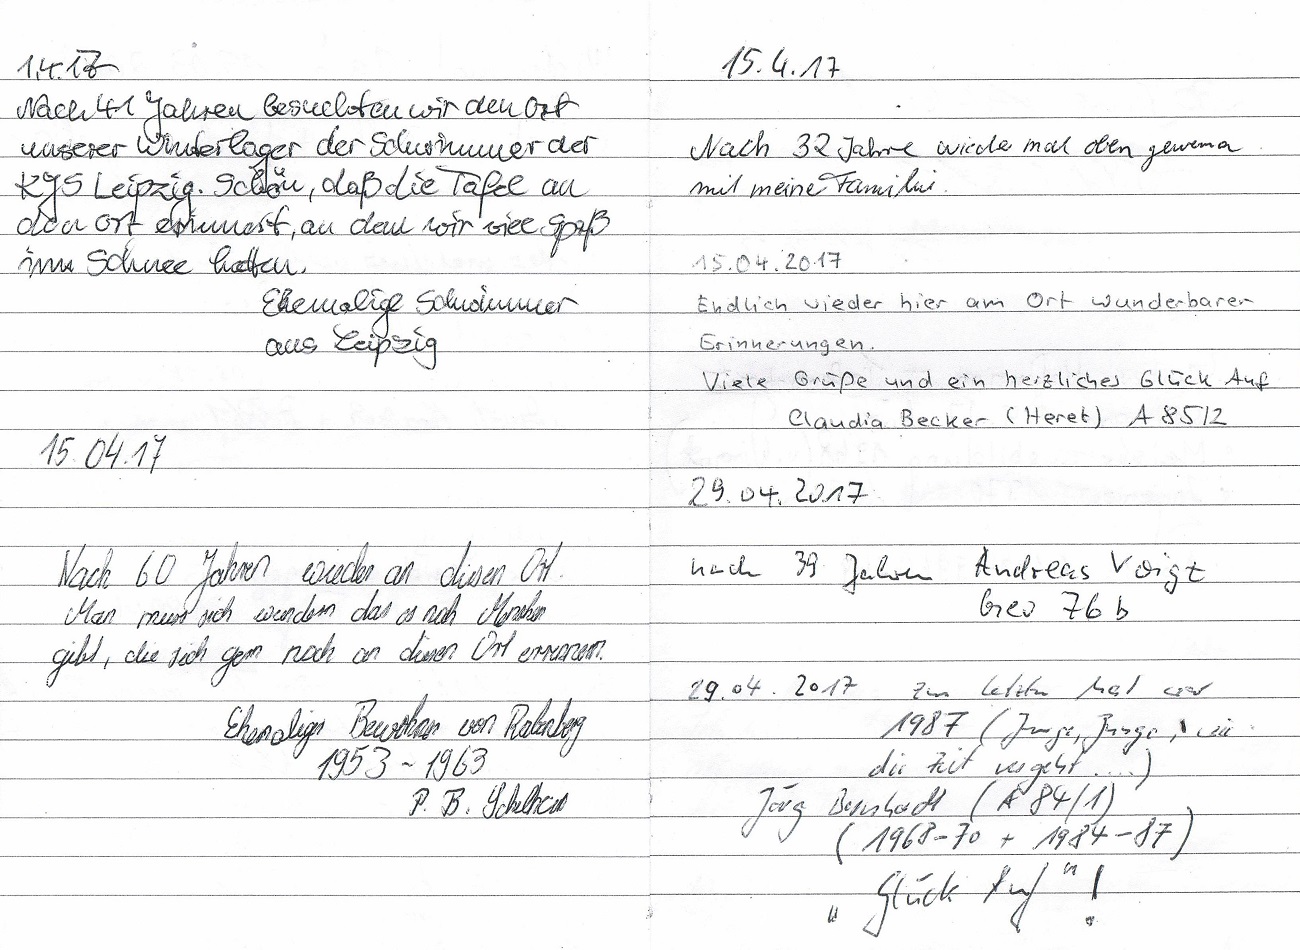 1.4.17
Nach 41 Jahren besuchten wir den Ort
unserer Winterlager der Schwimmer der
KJS Leipzig. Schön, daß die Tafel an
den Ort erinnert, an dem wir viel Spaß
im Schnee hatten.
Ehemalige Schwimmer
aus Leipzig
15.04.17
Nach 60 Jahren wieder an diesen Ort.
Man muss sich wundern das es noch Menschen
gibt, die sich gern noch an diesen Ort erinnern.
Ehemaliger Bewohner von
1953 - 1963
P. B.
15.4.17
Nach 32 Jahre wieder mal oben gewesen
mit meine Familie.
15.04.2017
Endlich wieder hier am Ort wunderbarer
Erinnerungen.
Viele Grüße und ein herzliches Glück Auf
Claudia Becker (Heret) A 85/2
29.04.2017
nach 39 Jahren Andreas Voigt
76 b
29.04.2017 zum letzten Mal war
1987 (Junge, Junge, wie
die Zeit vergeht ....)
Jörg Bernhardt (A 84/1)
(1968-70 + 1984-87)
„Glück Auf"!